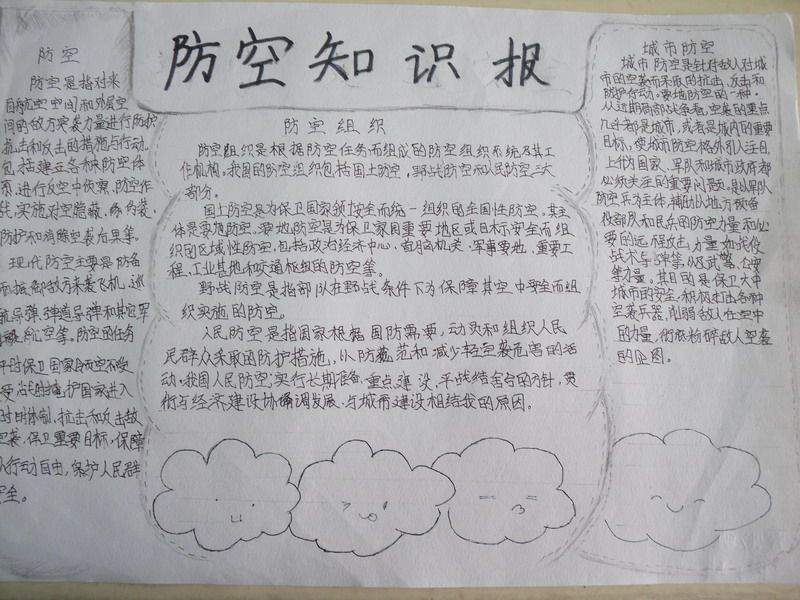 防空知识报
防空
防空是指对来
自航空空间和外层空
间的敌方突袭力量进行防护
抗击和反击的措施与行动。
包括建立各种防空体
系,进行反空中侦察,防空作
战,实施对空隐蔽、伪装,
防护和消除空袭后果等。
现代防空主要是防备
和抵御敌方来袭飞机、巡
航导弹、弹道导弹和其它军
航空等。防空的任务
平时保卫国家领空不受
护国家进入
抗击和反击敌
空袭、保卫重要目标,保障
行动自由,保护人民群
安全。
防空组织
防空组织是根据防空任务而组成的防空组织系统及其工
作机构。我国的防空组织包括国土防空,野战防空和人民防空三大
部分。
国土防空是为保卫国家领空安全而统一组织的全国性防空。其主
体是要地防空。要地防空是为保卫国家重要地区或目标安全而组
织的区域性防空,包括政治经济中心、首脑机关、军事要地、重要工
程、工业基地和交通枢纽的防空等。
野战防空是指部队在野战条件下为保障其空中安全而组
织实施的防空。
人民防空是指国家根据国防需要,动员和组织人民
民群众采取的防护措施,以防范和减少轻空袭危害的活
动。我国人民防空实行长期准备、重点建设、平战结合的方针,贯
彻与经济建设协调发展、与城市建设相结合的原因。
城市防空
城市防空是针对敌人对城
市的空袭而采取的抗击、反击和
防护行动。要地防空的一种。
从近期局部战争看,空袭的重点
几乎都是城市,或者是城内的重要
目标,使城市防空格外引人注目,
上升为国家、军队和城市政府都
必须关注的重要问题。是以军队
防空兵为主体,辅助以地方预备
役部队和民兵的防空力量和必
要的远程攻击力量如
战术导弹等
等力量。其目的是保卫大中
城市的安全,积极打击各种
空袭兵器,削弱敌人在空中
的力量,彻底粉碎敌人空袭
的企图。